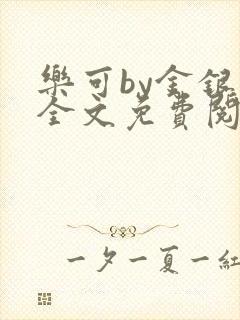 樂可by金銀
全文免費閱
一夕一夏一紅